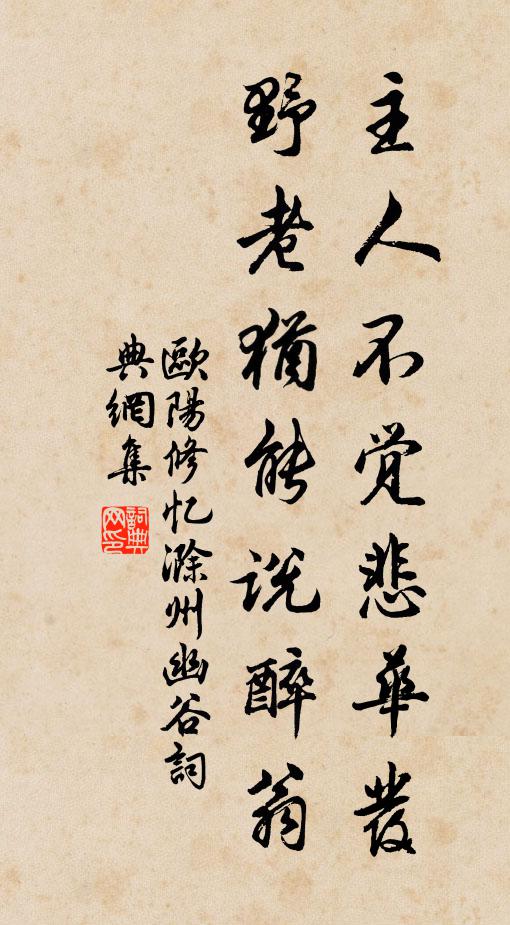 主人不觉悲華發
野老猶能说醉翁
歐陽修忆滁州幽谷詞
典網集
詞典网印